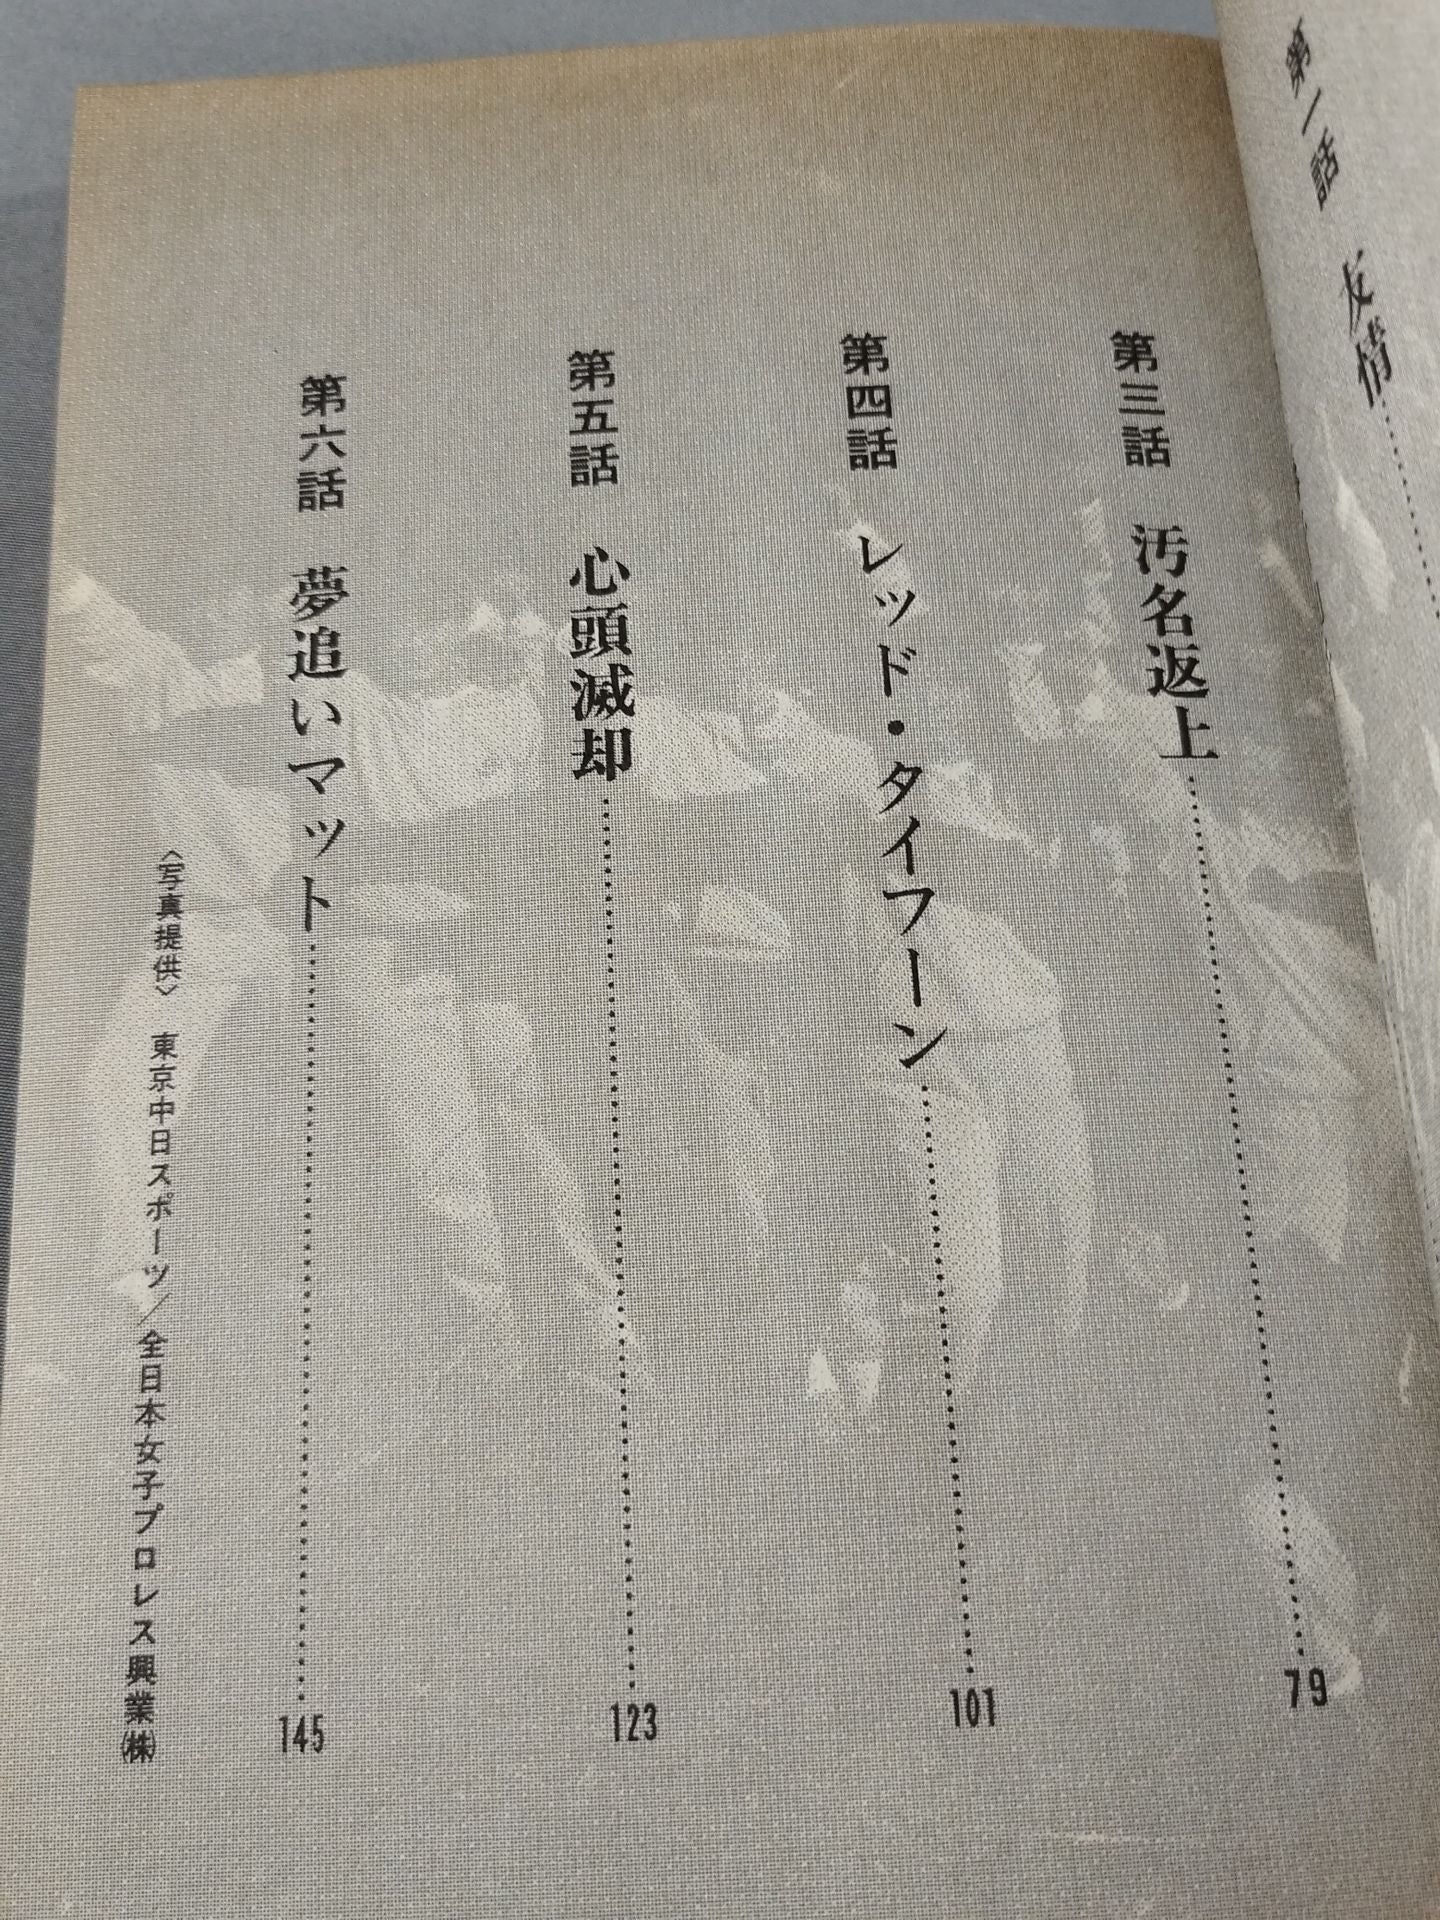 第一話　友情
第三話　汚名返上 79
第四話　レッド・タイフーン 101
第五話　心頭滅却 123
第六話　夢追いマット 145
〈写真提供〉　東京中日スポーツ／全日本女子プロレス興業㈱